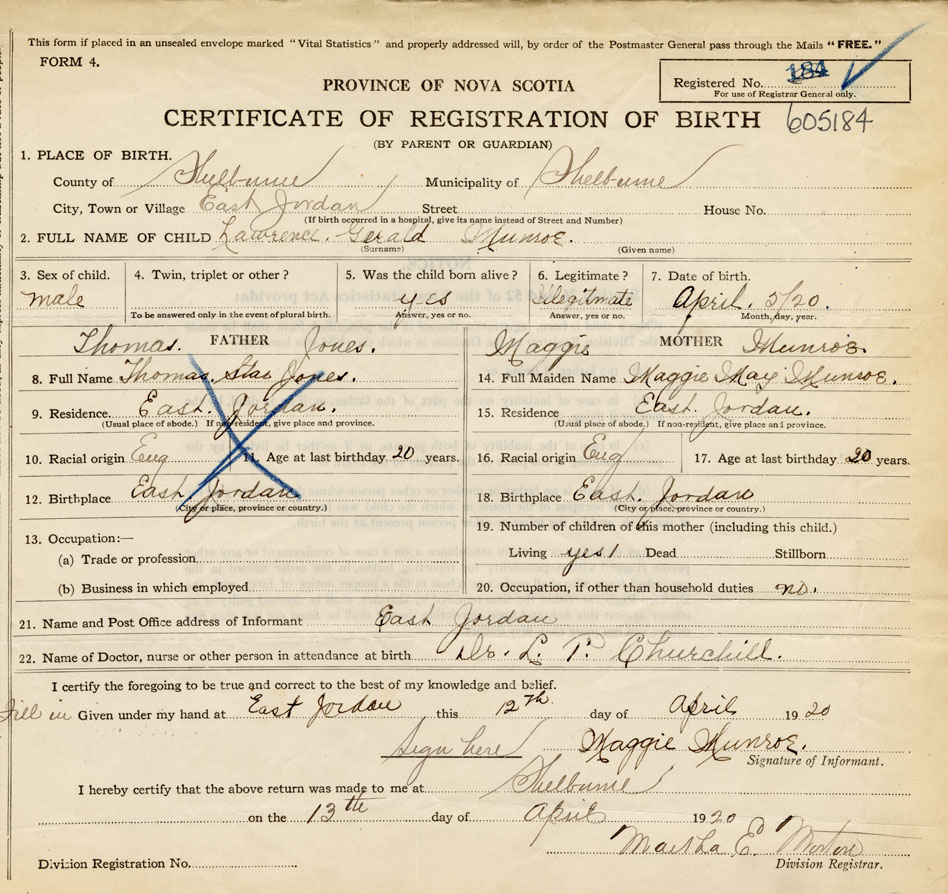 This form if placed in an unsealed envelope marked "Vital Statistics" and properly addressed will, by order of the Postmaster General pass through the Mails "FREE."
FORM 4.
Registered No. 184
For use of Registrar General only.
PROVINCE OF NOVA SCOTIA
CERTIFICATE OF REGISTRATION OF BIRTH 605184
(BY PARENT OR GUARDIAN)
1. PLACE OF BIRTH.
County of Shelburne Municipality of Shelburne
City, Town or Village East Jordan Street House No.
(If birth occurred in a hospital, give its name instead of Street and Number)
2. FULL NAME OF CHILD Lawrence. Gerald Munroe.
(Surname) (Given name)
3. Sex of child. 4. Twin, triplet or other? 5. Was the child born alive? 6. Legitimate? 7. Date of birth.
male yes Illegitmate April. 5/20.
To be answered only in the event of plural birth. Answer, yes or no. Answer, yes or no. Month, day, year.
Thomas. FATHER Jones. Maggie MOTHER Munroe.
8. Full Name Thomas. Jones. 14. Full Maiden Name Maggie May Munroe.
9. Residence. East. Jordan. 15. Residence East. Jordan.
(Usual place of abode.) If non-resident, give place and province. (Usual place of abode.) If non-resident, give place and province.
10. Racial origin Eng 11. Age at last birthday 20 years. 16. Racial origin Eng 17. Age at last birthday 20 years.
12. Birthplace East Jordan 18. Birthplace East. Jordan
(City or place, province or country.) (City or place, province or country.)
13. Occupation:— 19. Number of children of this mother (including this child.)
(a) Trade or profession Living yes 1 Dead Stillborn
(b) Business in which employed 20. Occupation, if other than household duties no.
21. Name and Post Office address of Informant East Jordan
22. Name of Doctor, nurse or other person in attendance at birth Dr. L. P. Churchill.
I certify the foregoing to be true and correct to the best of my knowledge and belief.
Fill in Given under my hand at East Jordan this 12th day of April 1920
Sign here Maggie Munroe.
Signature of Informant.
I hereby certify that the above return was made to me at Shelburne
on the 13th day of April 1920
Martha E. Morton
Division Registration No. Division Registrar.